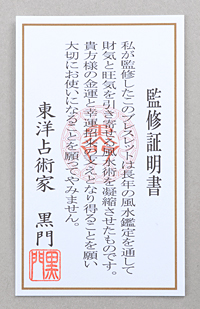 監修証明書
私が監修したこのブレスレットは長年の風水鑑定を通して
財気と旺気を引き寄せる風水術を凝縮させたものです。
貴方様の金運と幸運招来の支えとなり得ることを願い
大切にお使いになることを願ってやみません。
東洋占術家 黒門
黒門